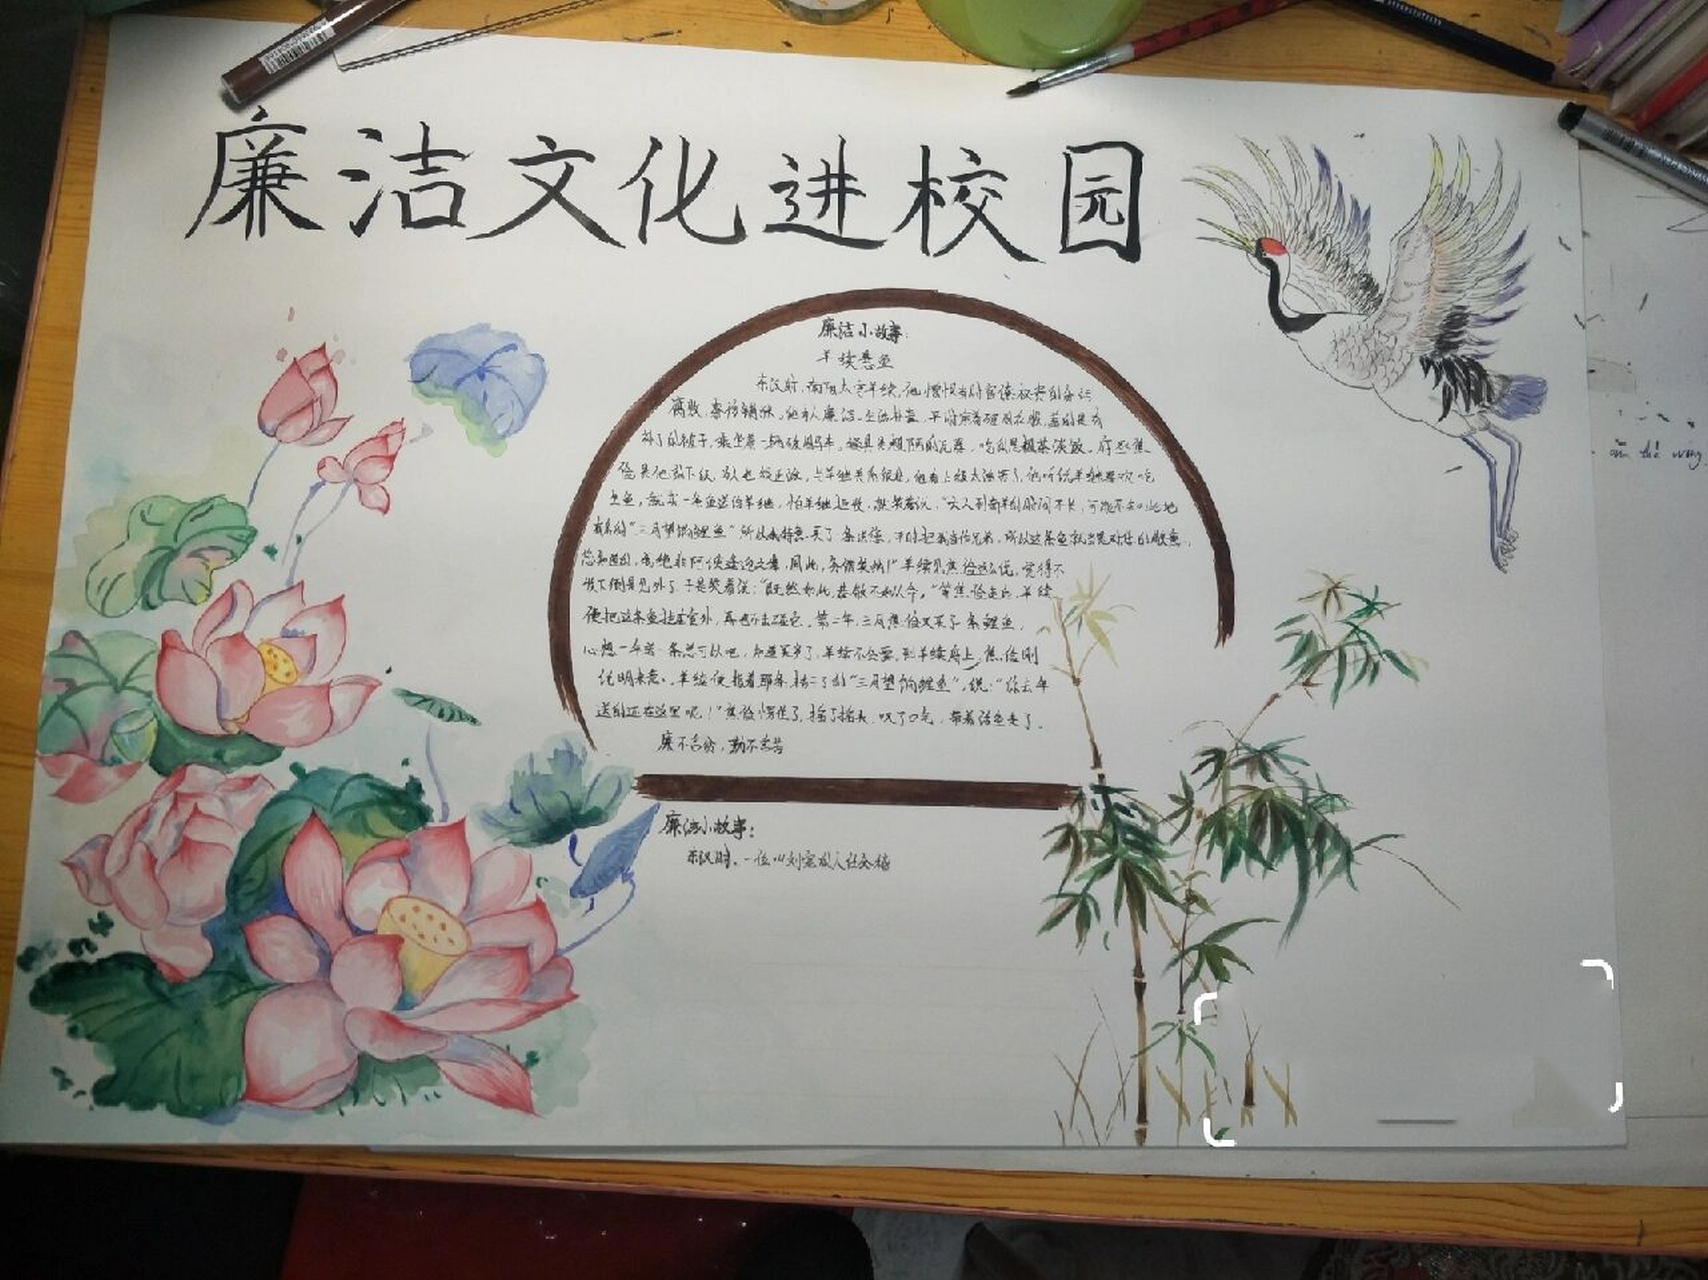 廉洁文化进校园
廉洁小故事:
羊续悬鱼
东汉时,南阳太守羊续,他憎恨当时官僚权贵的贪污
腐败,奢侈铺张。他为人廉洁,生活朴素。平时穿着破旧衣服,盖的是有
补丁的被子,乘坐一辆破旧马车。餐具是粗陋的瓦器,吃的是粗茶淡饭。府丞焦
俭是他的下级,为人也较正派,与羊续关系很好。他看上级太清苦了,他听说羊续喜欢吃
生鱼,就买一条鱼送给羊续,怕羊续拒收,就笑着说,“大人到南阳的时间不长,可能不知此地
有名的“三月望饷鲤鱼”所以我特意买了一条送您,平时把我当作兄弟,所以这条鱼就当是对您的敬意,
您知道的,我绝非阿谀逢迎之辈,因此,务请笑纳!”羊续见焦俭这么说,觉得不
收下倒是见外了,于是笑着说:“既然如此,恭敬不如从命。”等焦俭走后,羊续
便把这条鱼挂在室外,再也不去碰它。第二年,三月焦俭又买了一条鲤鱼,
心想一年送一条总可以吧,知道买多了,羊续不会要,到羊续府上,焦俭刚
说明来意,羊续便指着那条枯干了的“三月望饷鲤鱼”,说:“你去年
送的还在这里呢!”焦俭愣住了,摇了摇头,叹了口气,带着活鱼走了。
廉不言贫,勤不言苦
廉洁小故事:
东汉时,一位叫刘宠的人任会稽